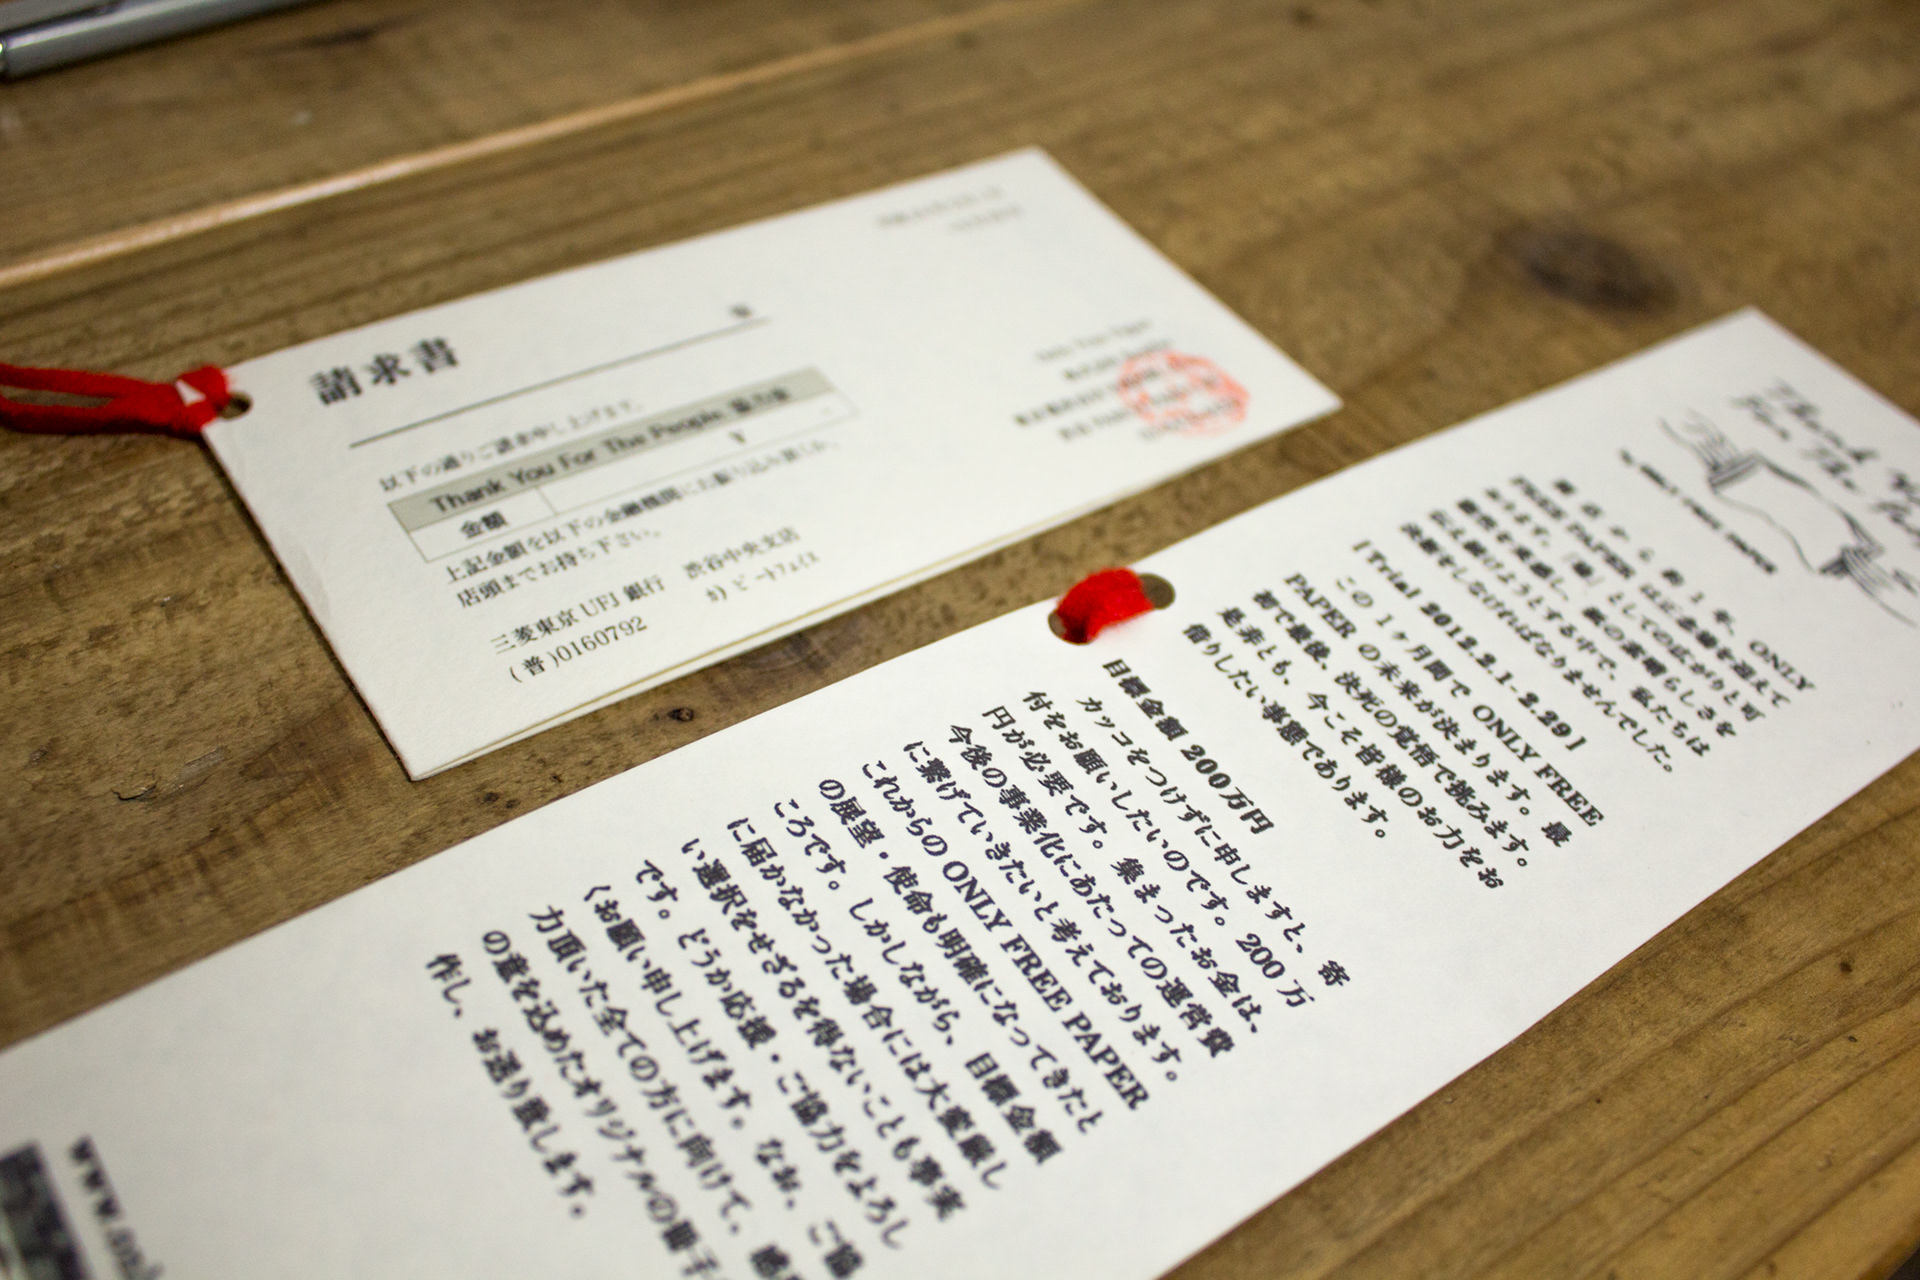 請求書
以下の通りご請求申し上げます。
Thank You For The People 協力金
金額
¥
上記金額を以下の金融機関にお振り込み頂くか、
店頭までお持ち下さい。
三菱東京 UFJ 銀行 渋谷中央支店
(普)0160792
カ) ビートフェイス
Thank You
For The
発店から約1年、ONLY
FREE PAPER は正念場を迎えて
おります。「場」としての広がりと可
能性を実感し、紙の素晴らしさを
伝え続けようとする中で、私たちは
決断をしなければなりませんでした。
[Trial 2012.2.1-2.29]
この1ヶ月間で ONLY FREE
PAPER の未来が決まります。最
初で最後、決死の覚悟で挑みます。
是非とも、今こそ皆様のお力をお
借りしたい事態であります。
目標金額 200万円
カッコをつけずに申しますと、寄
付をお願いしたいのです。200 万
円が必要です。集まったお金は、
今後の事業化にあたっての運営費
に繋げていきたいと考えております。
これからの ONLY FREE PAPER
の展望・使命も明確になってきたと
ころです。しかしながら、目標金額
に届かなかった場合には大変厳し
い選択をせざるを得ないことも事実
です。どうか応援・ご協力をよろし
くお願い申し上げます。なお、ご協
力頂いた全ての方に向けて、感
の意を込めたオリジナルの冊子
作し、お送り致します。
www.onl